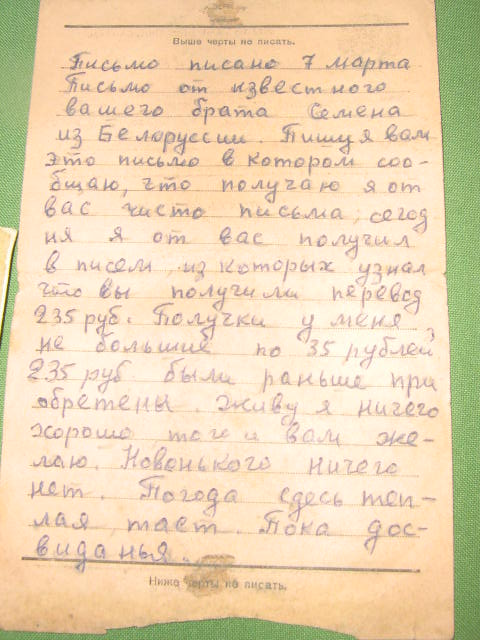 Выше черты не писать.
Письмо писано 7 марта
Письмо от известного
вашего брата Семена
из Белоруссии. Пишу я вам
это письмо в котором соо-
бщаю, что получаю я от
вас чисто письма, сегод
ня я от вас получил
в писем из которых узнал
что вы получили перевод
235 руб. Получки у меня
не большие по 35 рублей,
235 руб были раньше при
обретены. Живу я ничего
хорошо того и вам же-
лаю. Новенького ничего
нет. Погода здесь теп-
лая тает. Пока дос-
виданья.
Ниже черты не писать.